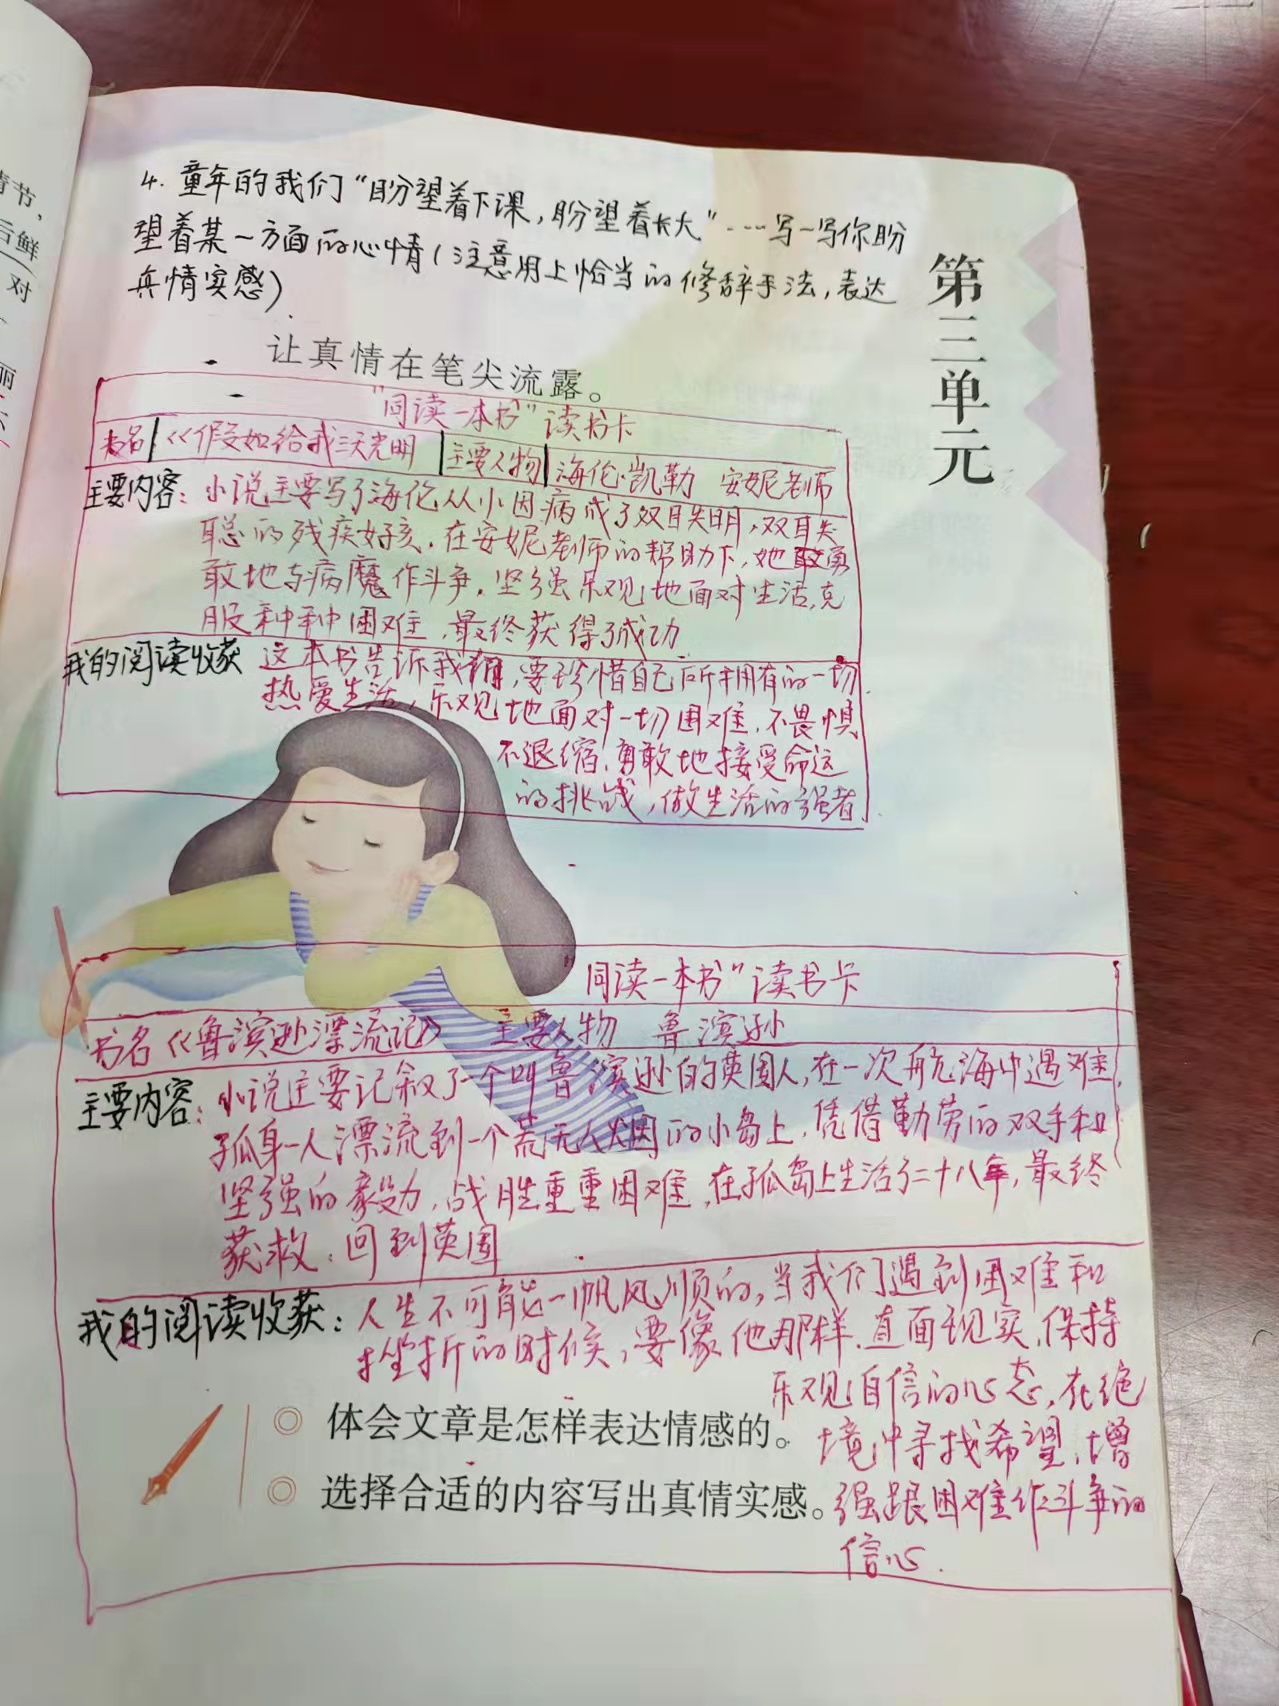 情节,
后鲜
对
丽
4. 童年的我们“盼望着下课,盼望着长大”……写一写你盼
望着某一方面的心情(注意用上恰当的修辞手法,表达
真情实感)
第三单元
让真情在笔尖流露。
“同读一本书”读书卡
书名 《假如给我三天光明 主要人物 海伦·凯勒 安妮老师
主要内容: 小说主要写了海伦从小因病成了双目失明,双耳失
聪的残疾女孩.在安妮老师的帮助下,她勇
敢地与病魔作斗争.坚强乐观地面对生活,克
服种种困难,最终获得了成功
我的阅读收获 这本书告诉我们,要珍惜自己所拥有的一切.
热爱生活,乐观地面对一切困难,不畏惧
不退缩.勇敢地接受命运
的挑战,做生活的强者.
同读一本书”读书卡
书名《鲁滨逊漂流记》 主要人物 鲁滨逊
主要内容: 小说主要记叙了一个叫鲁滨逊的英国人,在一次航海中遇难,
孤身一人漂流到一个荒无人烟的小岛上,凭借勤劳的双手和
坚强的毅力,战胜重重困难,在孤岛上生活了二十八年,最终
获救,回到英国
我的阅读收获: 人生不可能一帆风顺的,当我们遇到困难和
挫折的时候,要像他那样.直面现实,保持
乐观自信的心态,在绝
体会文章是怎样表达情感的。 境中寻找希望,增
选择合适的内容写出真情实感。 强跟困难作斗争的
信心.